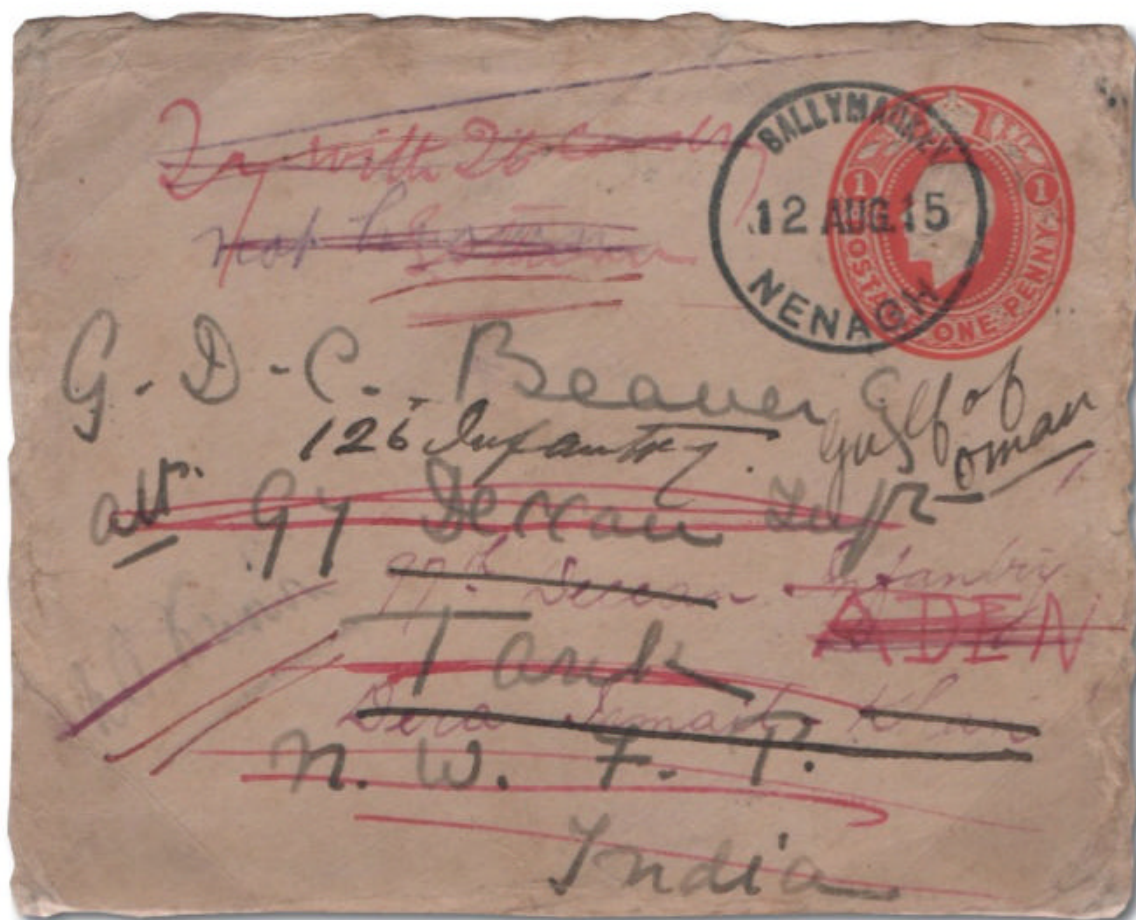 Try with 26
not
BALLYMACKEY
12 AUG. 15
NENAGH
1 1
POSTAGE ONE PENNY
G. D. C. Beaver
126 Infantry.
Gulf of
Oman
att. 97 Deccan Infr
97th Deccan Infantry
ADEN
Tank
Dera Ismail Khan
N. W. F. P.
India